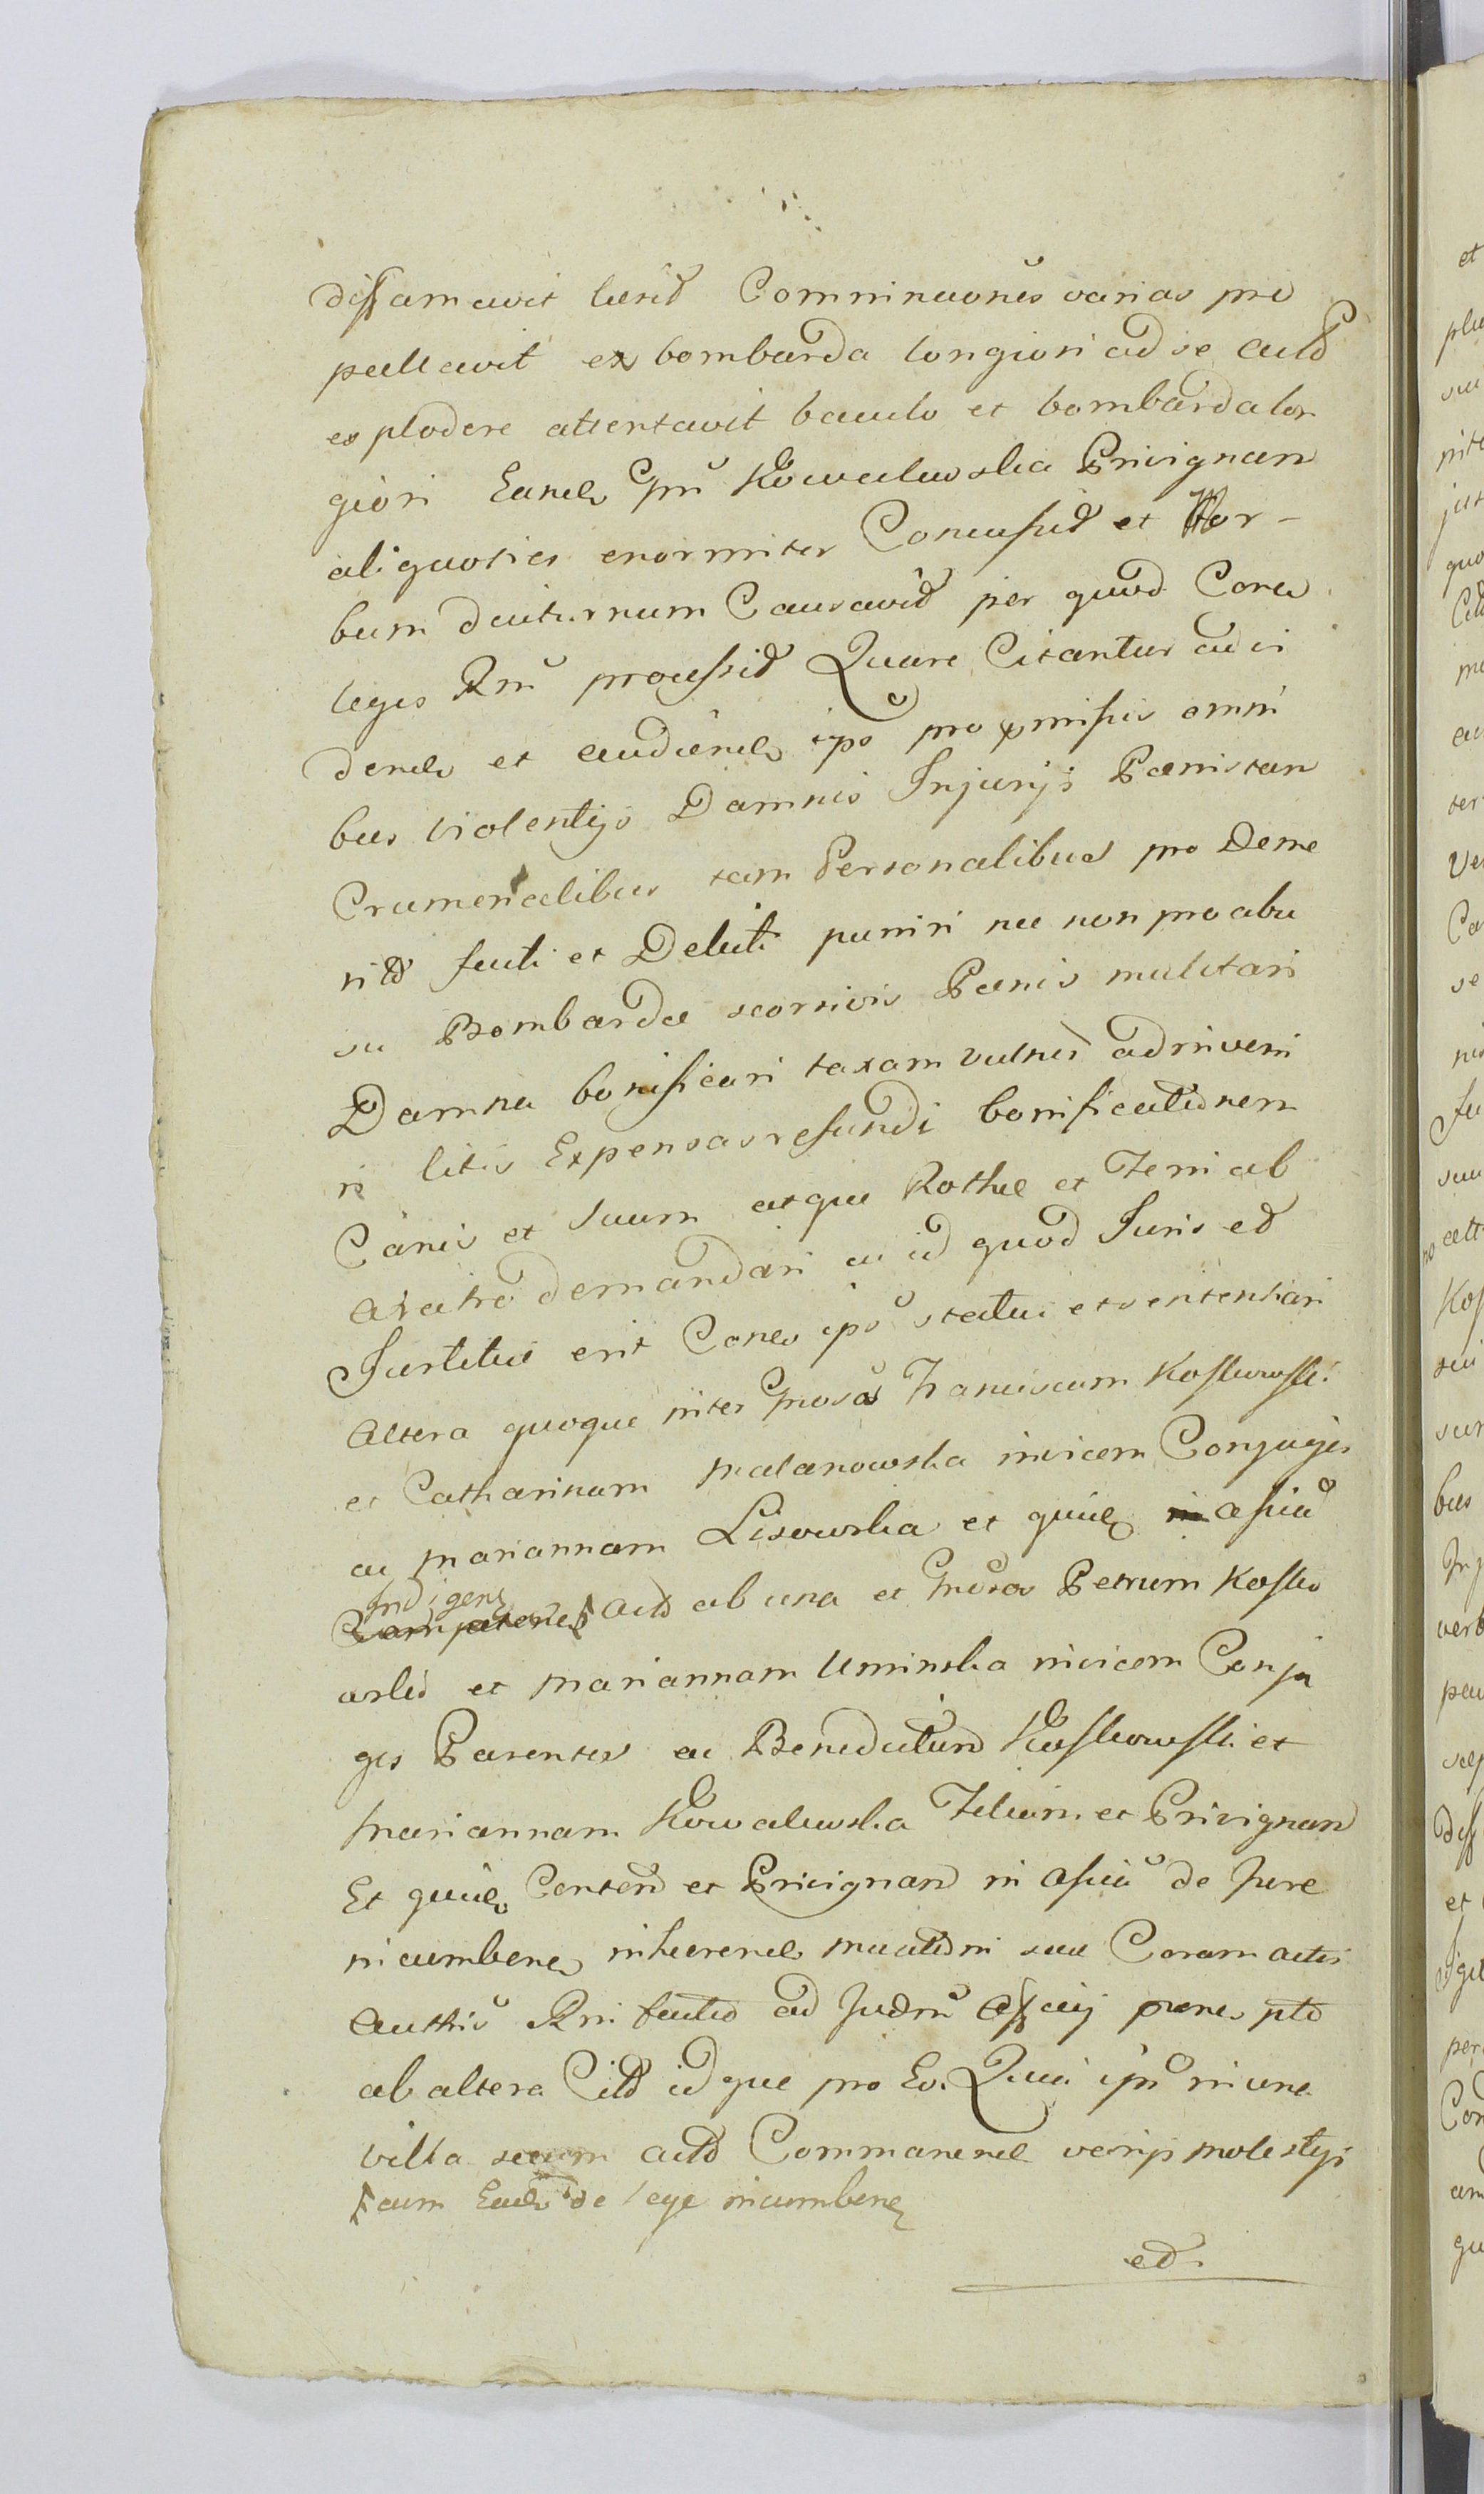 diffamavit læsit Comminaones varias pro
pallavit ex bombarda longiori ad se actd
explodere attentavit baculo et bombarda lon
giori Eand Gnu Kowalewska Privignam
aliquoties enormiter Concussit et Mor-
bum diuturnum Causavit per quod Contra
leges Rni processit Quare Citantur ad vi
dend et audiend ips pro pmissis omni
bus violentijs Damnis Injurijs Pænis tam
Crumenalibus tam Personalibus pro Deme
ritd facti et Delicti puniri nec non pro abu
su Bombardæ seorsivis Pænis mulctari
Damna bonificari taxam vulner adinveni
ri litis Expensas refundi bonificationem
Canis et Suum atque Rothæ et Ferri ab
aratro demandari ac id quod Juris et
Justitiæ erit Cones ips statui et sententiari
Altera quoque inter Gnosos Franciscum Kossowski
et Catharinam Malanowska invicem Conjuges
ac Mariannam Lisowska et quæe in assia
Indigen
Competene actd ab una et Gnosos Petrum Kosso
wski et Mariannam Uminska invicem Conju
ges Parentes ac Benedictum Kossowski et
Mariannam Kowalewska Filium et Privignam
Et quæe Conten et Privignam in assia de Jure
incumbene inhærend mutioni suæ Coram actis
Authis Rni factæ ad Judm Assij prens pto
ab altera Citd idque pro Eo. Quia ipsi in una
villa secum actd Commanend varijs molestijs
cum Ead de lege incumbene
et